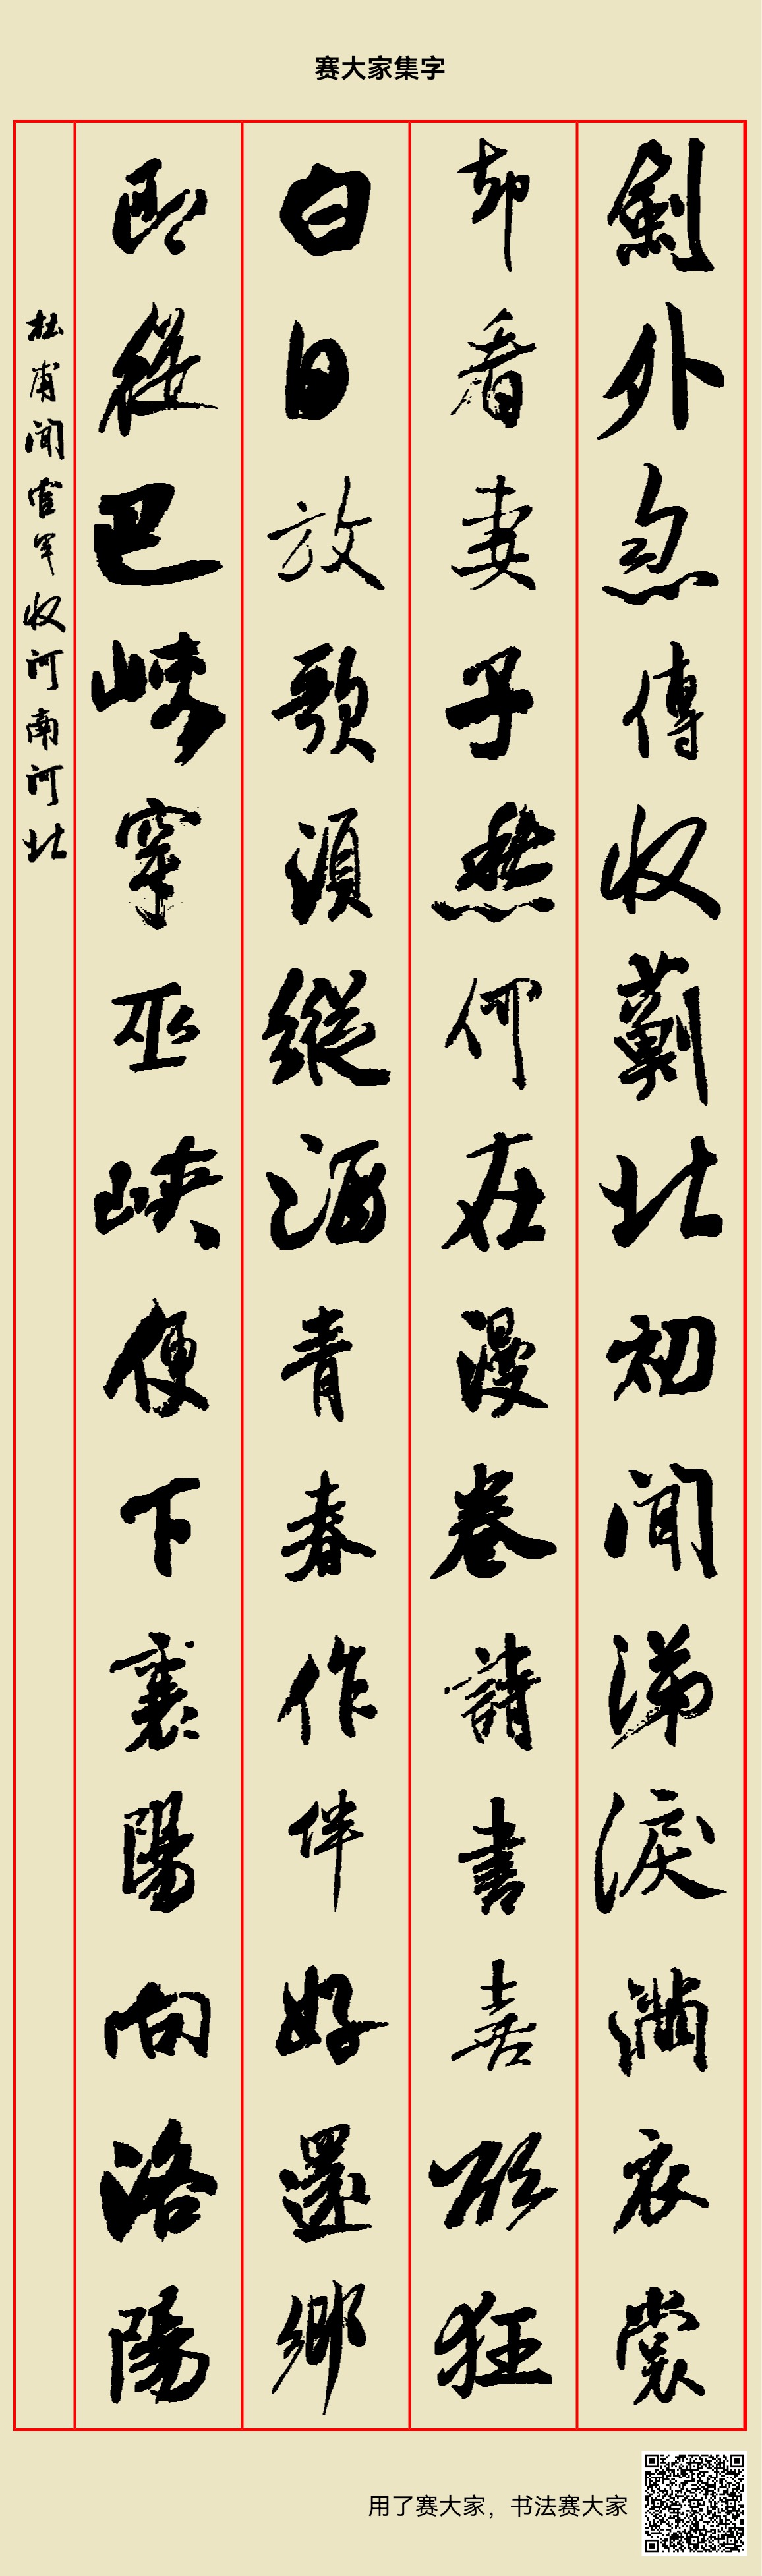 赛大家集字
劍外忽傳收薊北初聞涕淚滿衣裳
却看妻子愁何在漫卷詩書喜欲狂
白日放歌須縱酒青春作伴好還鄉
即從巴峽穿巫峽便下襄陽向洛陽
杜甫聞官軍收河南河北
用了赛大家，书法赛大家